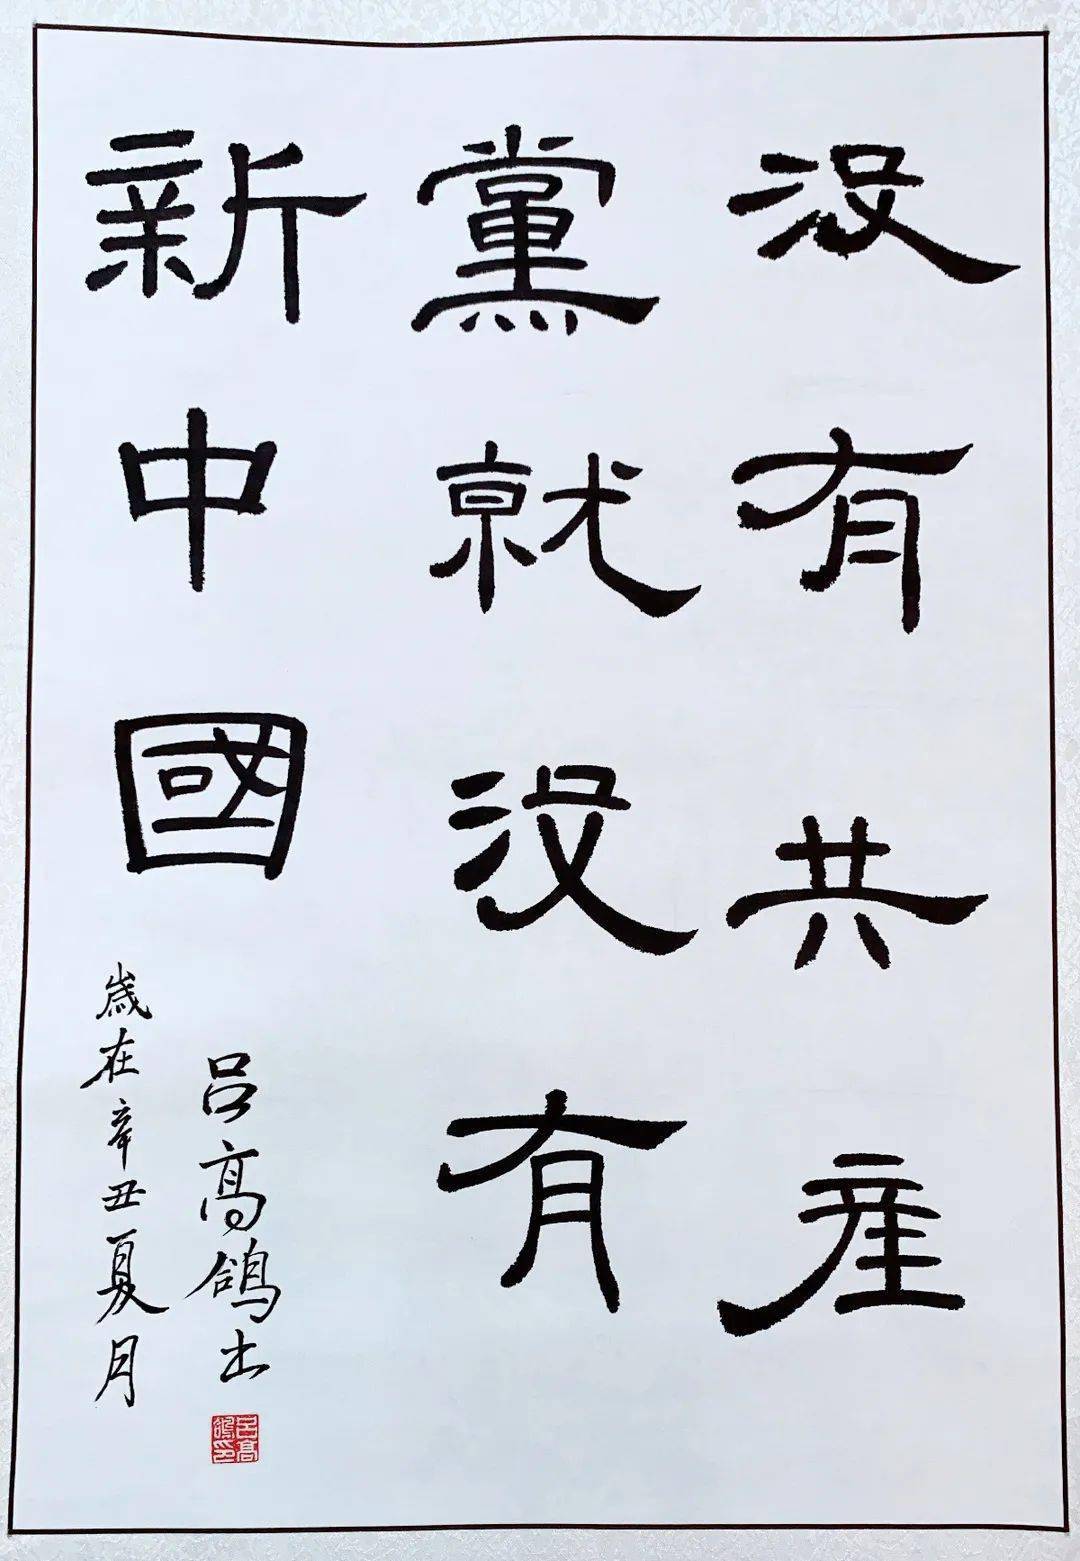 没有共産
黨就没有
新中國
歳在辛丑夏月
吕高鴿书
吕高鴿印